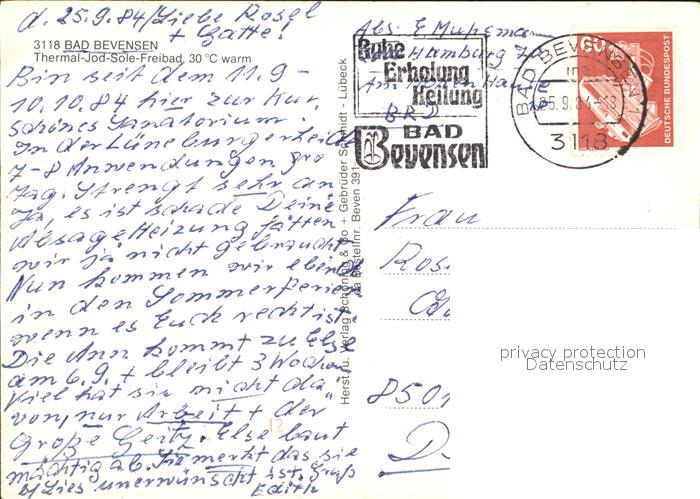 d. 25.9.84/Liebe Rosel
+ Gatte!
3118 BAD BEVENSEN
Thermal-Jod-Sole-Freibad, 30 °C warm
Bin seit dem 11.9 -
10.10.84 hier zur Kur,
schönes Sanatorium.
In der Lüneburgerheide
7-8 Anwendungen pro
Tag. Strengt sehr an
Ja, es ist schade Deine
Absage Heizung hätten
wir ja nicht gebraucht
Nun kommen wir eben
in den Sommerferien
wenn es Euch recht ist.
Die Ann kommt zu Else
am 6.9. + bleibt 3 Wochen
Viel hat sie nicht da
von, nur Arbeit + der
Große Geitz. Else baut
mächtig ab. Sie merkt das sie
unerwünscht ist. Gruß
Edith
Herst. u. Verlag Schöning & Co + Gebrüder Schmidt - Lübeck
Bestellnr. Beven 391
Abs. E Muhsmann
Hamburg 7
BRD
Ruhe
Erholung
Heilung
BAD
Bevensen
BAD BEVENSEN
3118
60
DEUTSCHE BUNDESPOST
Frau
Ros
8501
D
privacy protection
Datenschutz
12